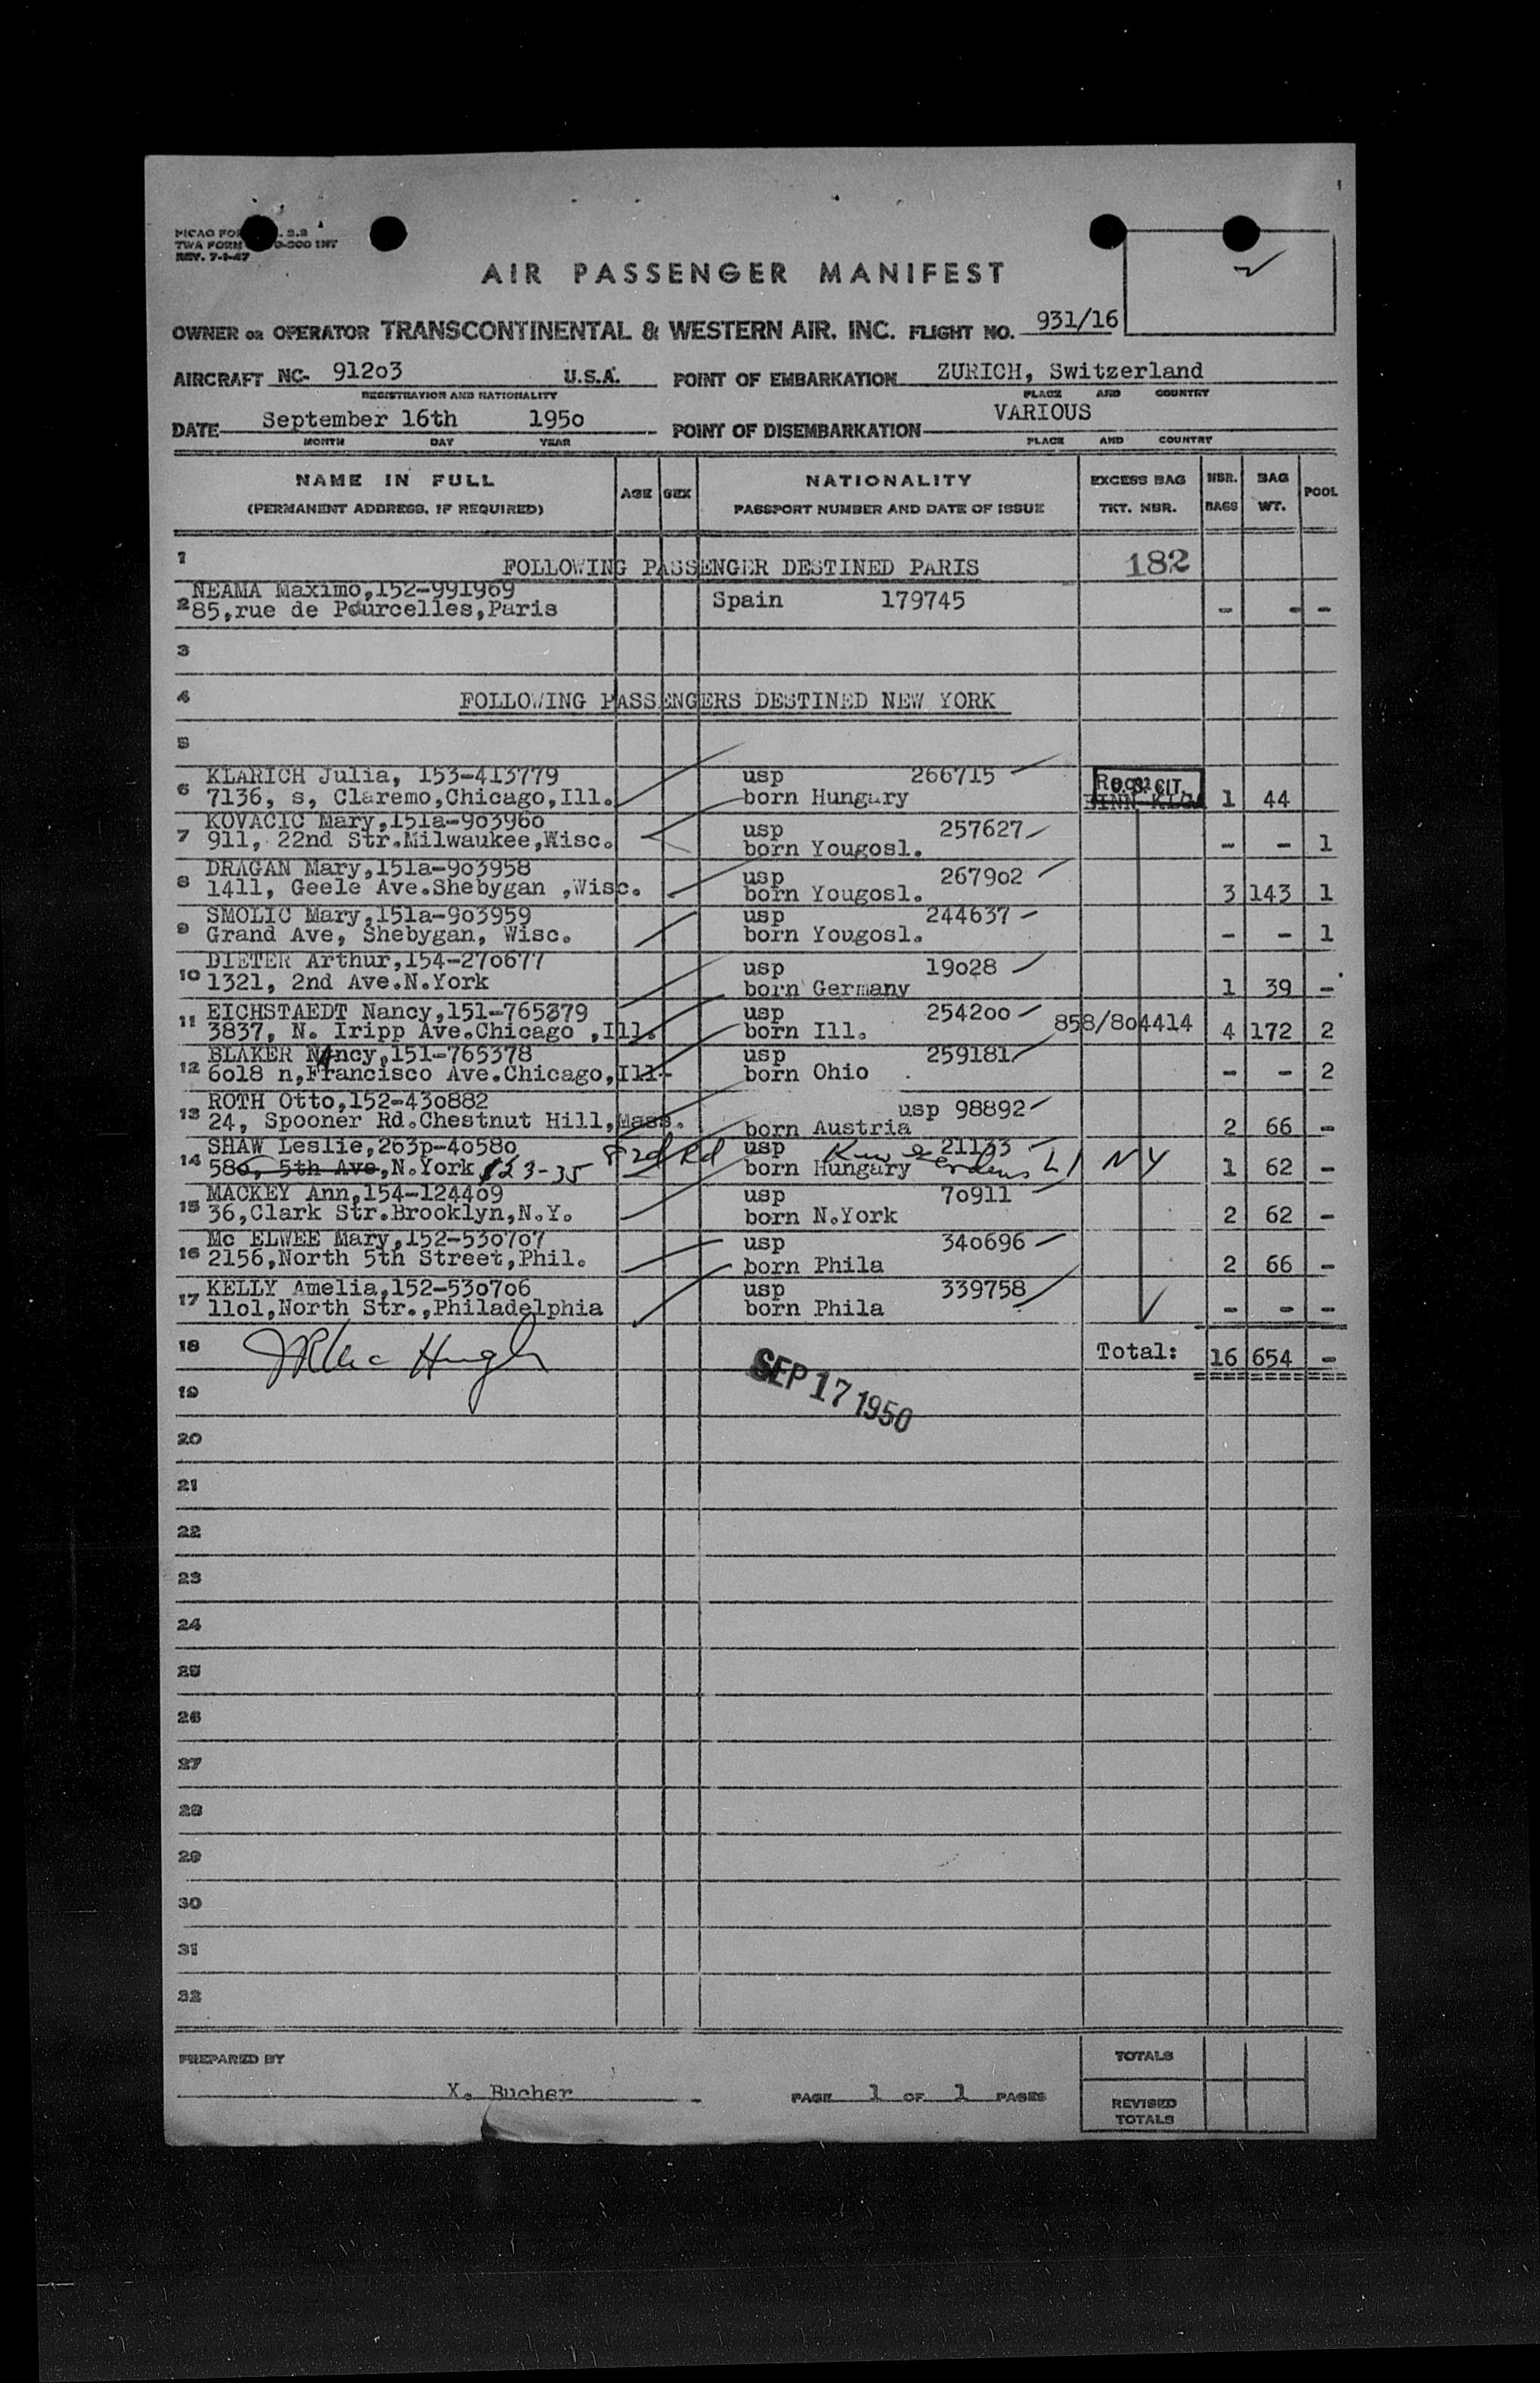 REV. 7-1-47
AIR PASSENGER MANIFEST
OWNER OR OPERATOR TRANSCONTINENTAL & WESTERN AIR. INC. FLIGHT NO. 931/16
AIRCRAFT NC- 912o3 U.S.A. POINT OF EMBARKATION ZURICH, Switzerland
REGISTRATION AND NATIONALITY PLACE AND COUNTRY
DATE September 16th 195o POINT OF DISEMBARKATION VARIOUS
MONTH DAY YEAR PLACE AND COUNTRY
NAME IN FULL AGE SEX NATIONALITY EXCESS BAG NBR. BAG POOL
(PERMANENT ADDRESS, IF REQUIRED) PASSPORT NUMBER AND DATE OF ISSUE TKT. NBR. BAGS WT.
1 FOLLOWING PASSENGER DESTINED PARIS 182
NEAMA Maximo,152-991969
2 85,rue de Pourcelles,Paris Spain 179745 - - -
3
4 FOLLOWING PASSENGERS DESTINED NEW YORK
5
KLARICH Julia, 153-413779 usp 266715
6 7136, s, Claremo,Chicago,Ill. born Hungary U.S. CIT. 1 44
KOVACIC Mary,151a-9o396o usp 257627
7 911, 22nd Str.Milwaukee,Wisc. born Yougosl. - - 1
DRAGAN Mary,151a-9o3958 usp 2679o2
8 1411, Geele Ave.Shebygan ,Wisc. born Yougosl. 3 143 1
SMOLIC Mary,151a-9o3959 usp 244637
9 Grand Ave, Shebygan, Wisc. born Yougosl. - - 1
DIETER Arthur,154-27o677 usp 19o28
10 1321, 2nd Ave.N.York born Germany 1 39 -
EICHSTAEDT Nancy,151-765379 usp 2542oo
11 3837, N. Iripp Ave.Chicago ,Ill. born Ill. 858/8o4414 4 172 2
BLAKER Nancy,151-765378 usp 259181
12 6o18 n,Francisco Ave.Chicago,Ill. born Ohio - - 2
ROTH Otto,152-43o882 usp 98892
13 24, Spooner Rd.Chestnut Hill,Mass. born Austria 2 66 -
SHAW Leslie,263p-4o58o usp 21133
14 58o, 5th Ave,N.York 123-35 82d Rd born Hungary Kew Gardens LI NY 1 62 -
MACKEY Ann,154-1244o9 usp 7o911
15 36,Clark Str.Brooklyn,N.Y. born N.York 2 62 -
Mc ELWEE Mary,152-53o7o7 usp 34o696
16 2156,North 5th Street,Phil. born Phila 2 66 -
KELLY Amelia,152-53o7o6 usp 339758
17 11o1,North Str.,Philadelphia born Phila - - -
18 Total: 16 654 -
SEP 17 1950
19
20
21
22
23
24
25
26
27
28
29
30
31
32
PREPARED BY TOTALS
X. Bucher PAGE 1 OF 1 PAGES REVISED
TOTALS